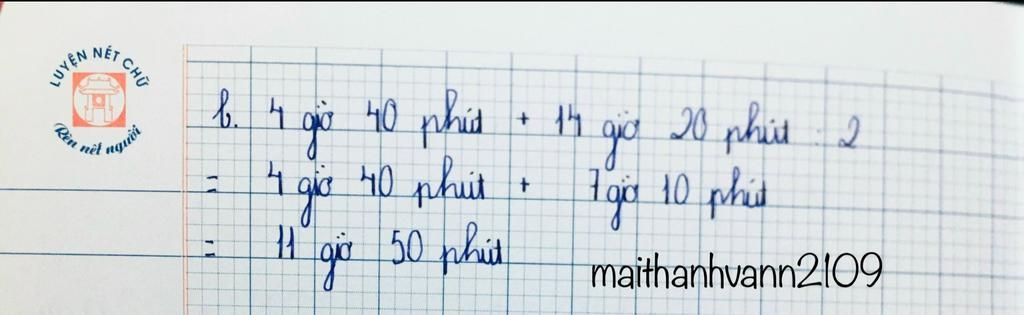 LUYỆN NÉT CHỮ
Rèn nết người
b. 4 giờ 40 phút + 14 giờ 20 phút : 2
= 4 giờ 40 phút + 7 giờ 10 phút
= 11 giờ 50 phút
maithanhvann2109